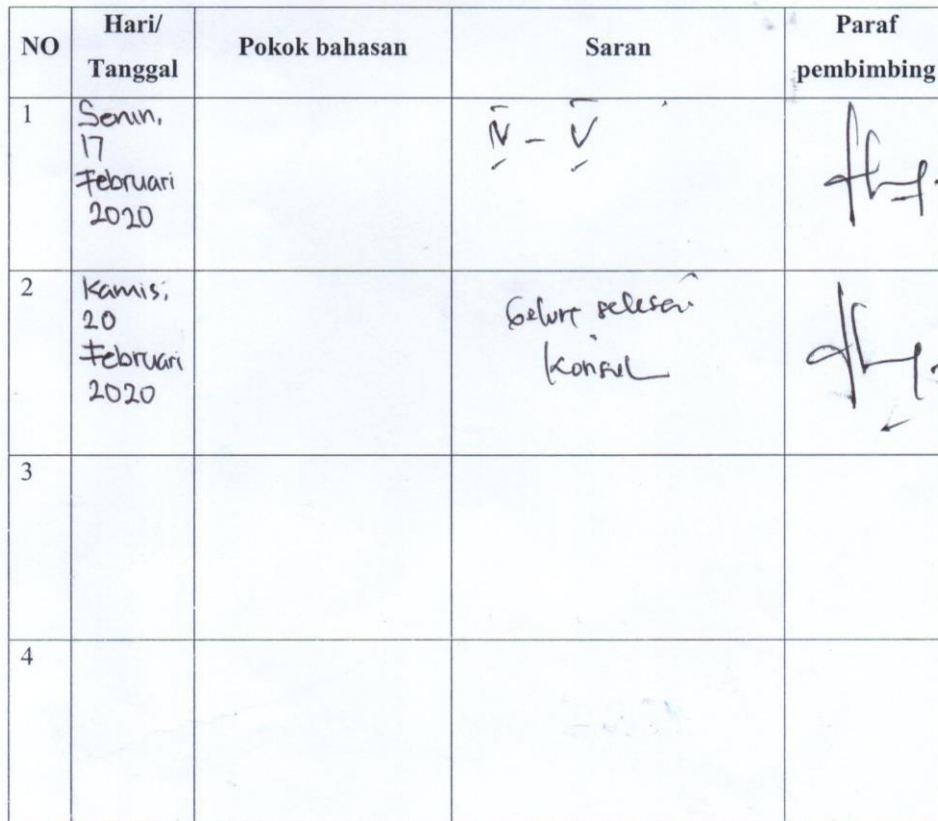 NO Hari/ Tanggal Pokok bahasan Saran Paraf pembimbing
1 Senin,
17
Februari
2020
IV - V
2 Kamis,
20
Februari
2020
selesai
Konsul
3
4